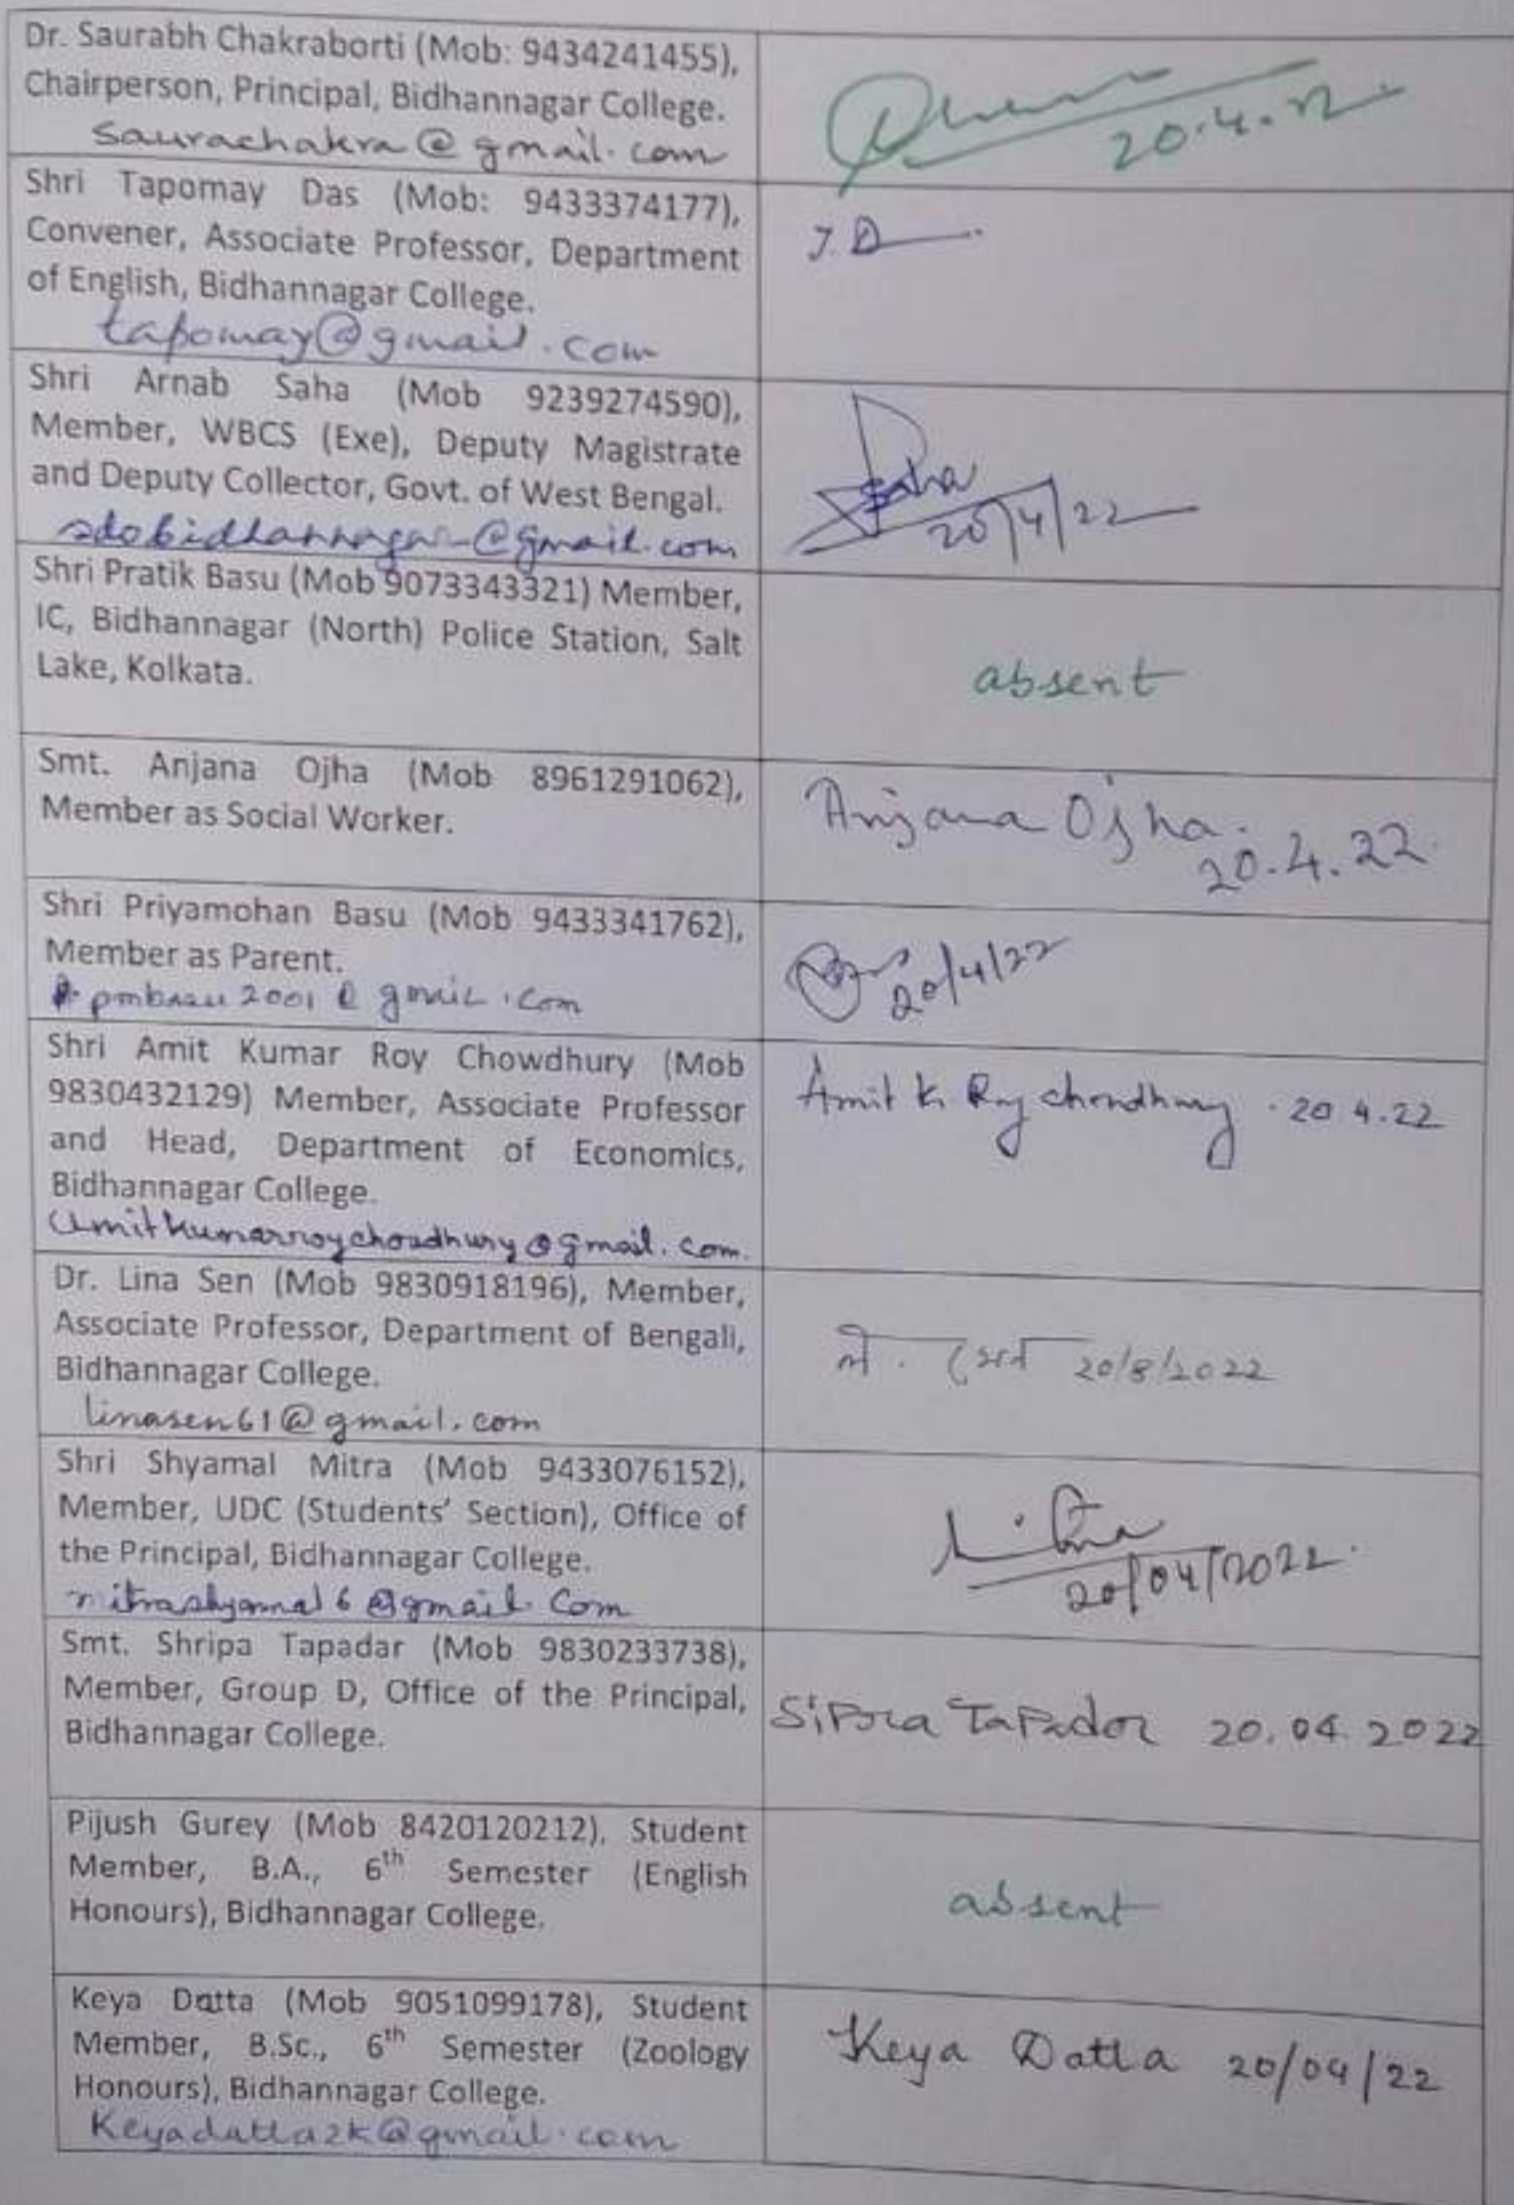 Dr. Saurabh Chakraborti (Mob: 9434241455),
Chairperson, Principal, Bidhannagar College.
saurachakra@gmail.com
20.4.22
Shri Tapomay Das (Mob: 9433374177),
Convener, Associate Professor, Department
of English, Bidhannagar College.
tapomay@gmail.com
T. D
Shri Arnab Saha (Mob 9239274590),
Member, WBCS (Exe), Deputy Magistrate
and Deputy Collector, Govt. of West Bengal.
sdobidhannagar@gmail.com
Saha
20/4/22
Shri Pratik Basu (Mob 9073343321) Member,
IC, Bidhannagar (North) Police Station, Salt
Lake, Kolkata.
absent
Smt. Anjana Ojha (Mob 8961291062),
Member as Social Worker.
Anjana Ojha.
20.4.22
Shri Priyamohan Basu (Mob 9433341762),
Member as Parent.
pmbasu2001@gmail.com
20/4/22
Shri Amit Kumar Roy Chowdhury (Mob
9830432129) Member, Associate Professor
and Head, Department of Economics,
Bidhannagar College.
amitkumarroychoudhury@gmail.com.
Amit K Roy Chowdhury . 20.4.22
Dr. Lina Sen (Mob 9830918196), Member,
Associate Professor, Department of Bengali,
Bidhannagar College.
linasen61@gmail.com
সেন ২০/৪/২০২২
Shri Shyamal Mitra (Mob 9433076152),
Member, UDC (Students' Section), Office of
the Principal, Bidhannagar College.
mitrashyamal6@gmail.com
20/04/2022.
Smt. Shripa Tapadar (Mob 9830233738),
Member, Group D, Office of the Principal,
Bidhannagar College.
SiPra TaPador 20.04.2022
Pijush Gurey (Mob 8420120212), Student
Member, B.A., 6th Semester (English
Honours), Bidhannagar College.
absent
Keya Datta (Mob 9051099178), Student
Member, B.Sc., 6th Semester (Zoology
Honours), Bidhannagar College.
Keyadatta2k@gmail.com
Keya Datta 20/04/22